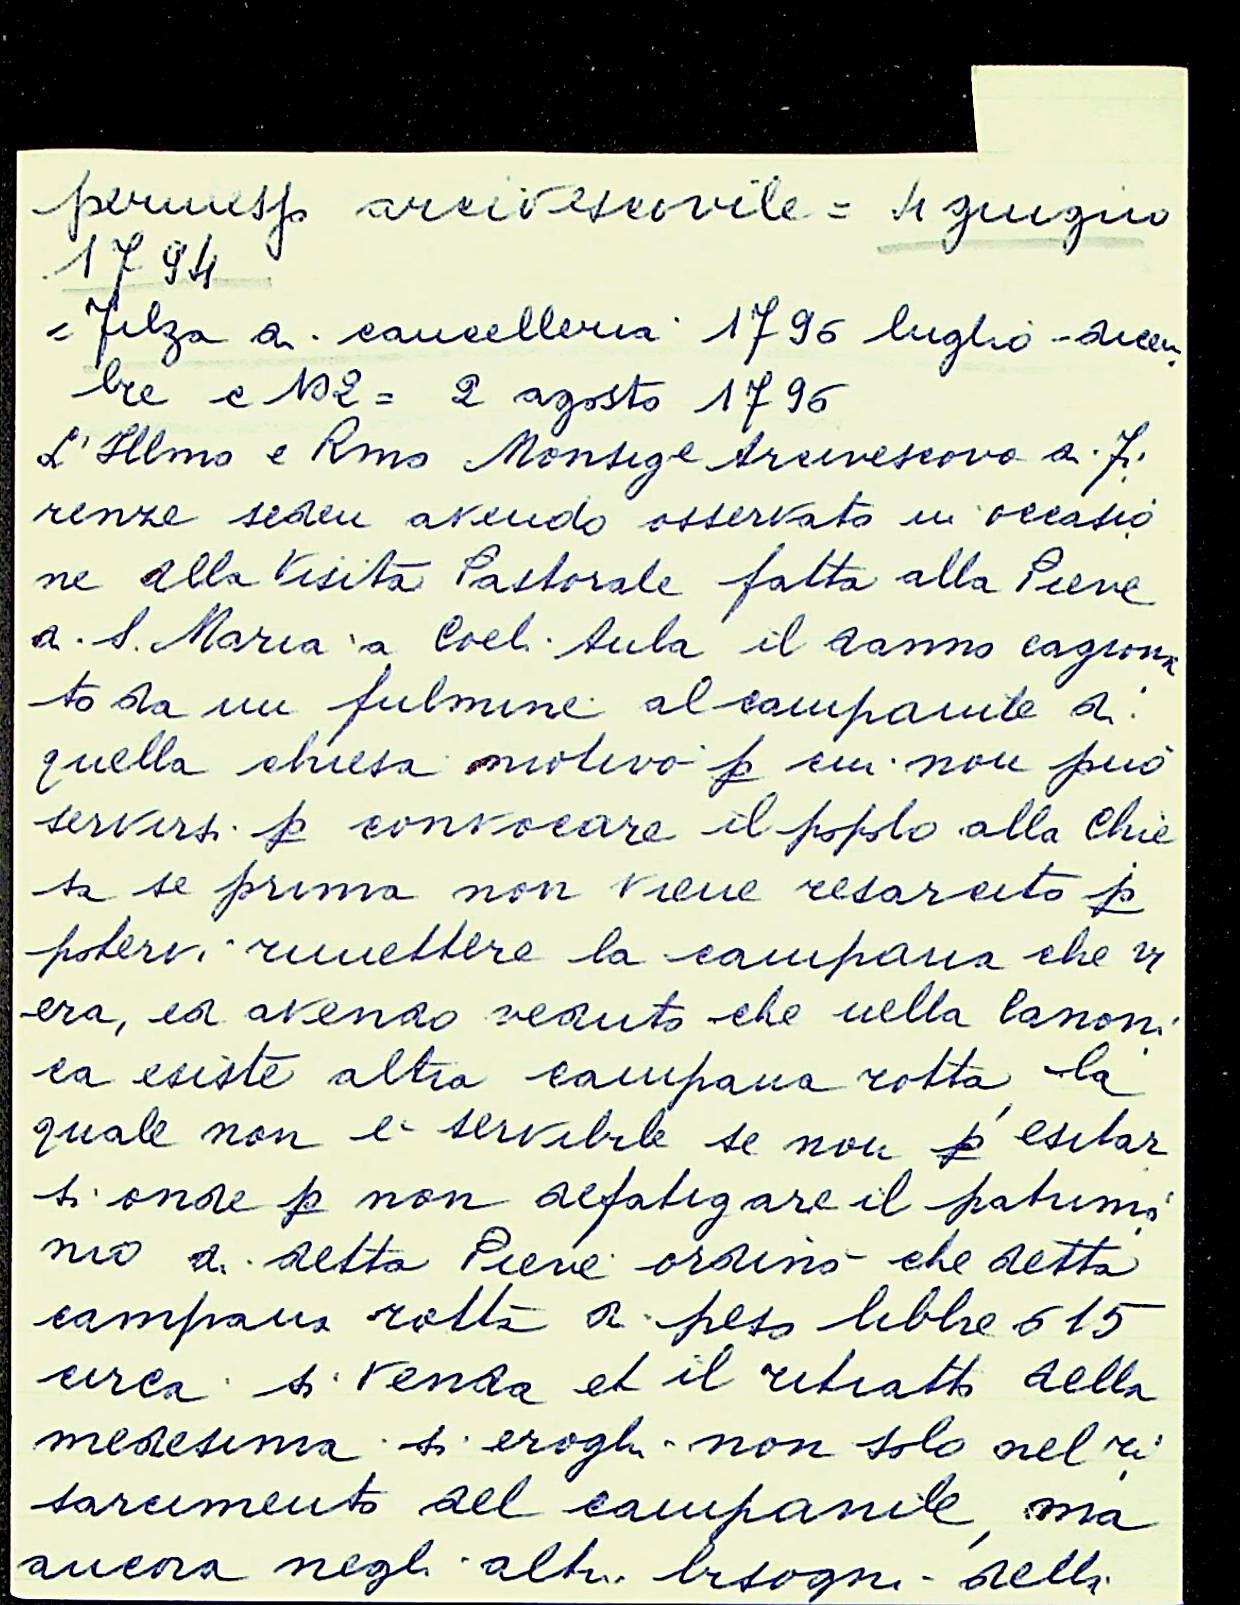 permesso arcivescovile = 4 giugno
1794
= Filza di cancelleria 1796 luglio - dicem
bre c 102 = 2 agosto 1796
L'Illmo e Rmo Monsige Arcivescovo di Fi
renze sedeu avendo osservato in occasio
ne della Visita Pastorale fatta alla Pieve
di S. Maria a Coeli Aula il danno cagiona
to da un fulmine al campanile di
quella chiesa motivo p cui non può
servirsi p convocare il popolo alla Chie
sa se prima non viene resarcito p
potervi rimettere la campana che vi
era, ed avendo veduto che nella Canoni
ca esiste altra campana rotta, la
quale non è servibile se non p esitar
si onde p non defatigare il patrimo
nio di detta Pieve ordinò che detta
campana rotta di peso libbre 615
circa si venda et il ritratto della
medesima si eroghi non solo nel ri
sarcimento del campanile, ma
ancora negli altri bisogni della